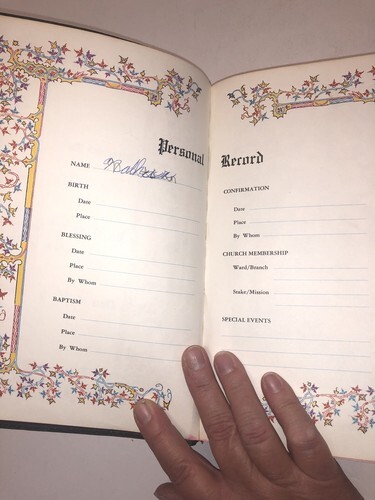 Personal Record
NAME
BIRTH
Date
Place
BLESSING
Date
Place
By Whom
BAPTISM
Date
Place
By Whom
CONFIRMATION
Date
Place
By Whom
CHURCH MEMBERSHIP
Ward/Branch
Stake/Mission
SPECIAL EVENTS